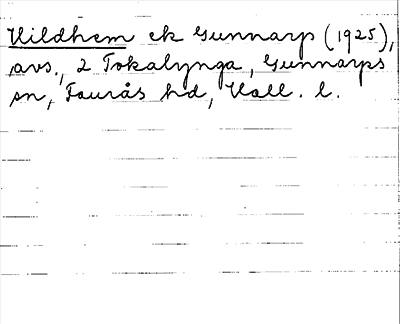 Vildhem ek Gunnarp (1925),
avs., 2 Tokalynga, Gunnarps
sn, Faurås hd, Hall. l.